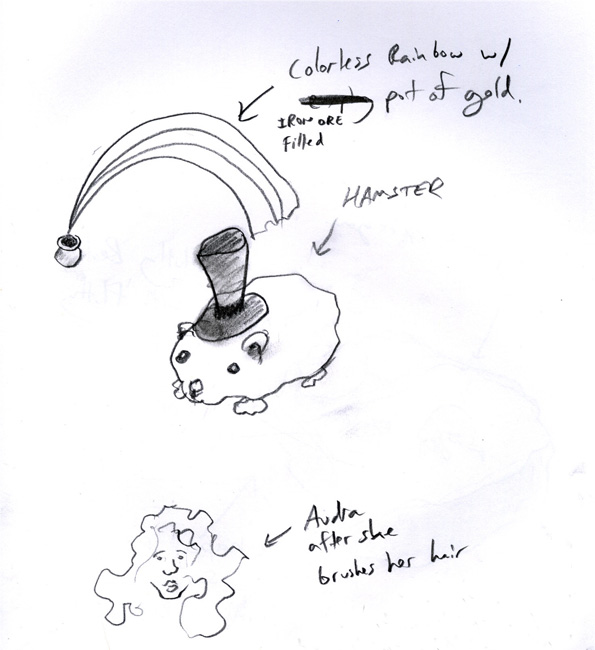 Colorless Rainbow w/
pot of gold.
IRON ORE
filled
HAMSTER
Audra
after she
brushes her hair